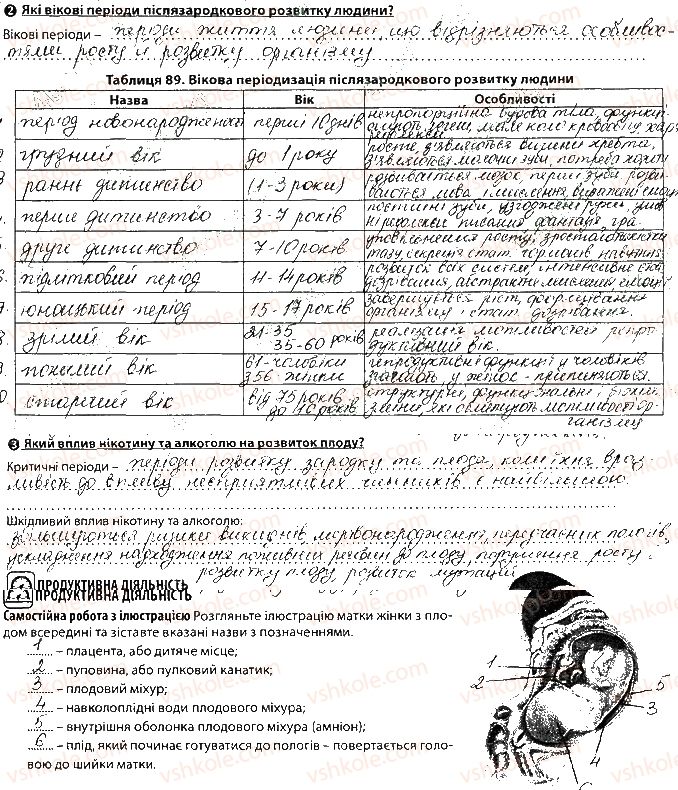 2 Які вікові періоди післязародкового розвитку людини?
Вікові періоди – періоди життя людини, що відрізняються особливос-
тями росту й розвитку організму
Таблиця 89. Вікова періодизація післязародкового розвитку людини
Назва Вік Особливості
період новонародженості перші 10 днів непропорційна будова тіла, функці-
грудний вік до 1 року росте, з'являються вигини хребта,
з'являються молочні зуби, потреба
раннє дитинство (1-3 роки) розвивається мозок, перші зуби
мова і мислення,
перше дитинство 3-7 років постійні зуби, узгоджені рухи,
писання фантазія, гра
друге дитинство 7-10 років уповільнення росту, зростає
тазу, секреція стат. гормонів
підлітковий період 11-14 років розвиток всіх систем, інтенсивне
дозрівання, абстрактне мислення
юнацький період 15-17 років завершується ріст, формування
організму і стат. дозрівання.
зрілий вік 21-35
35-60 років реалізація можливостей репро-
дуктивний вік.
похилий вік 61-чоловіки
56-жінки репродуктивні функції у чоловіків
у жінок - припиняються.
старчий вік від 75 років
до 90 років структурні, функціональні і
зміни, які можливості ор-
ганізму
3 Який вплив нікотину та алкоголю на розвиток плоду?
Критичні періоди – періоди розвитку зародку та плода, коли їхня враз-
ливість до впливу несприятливих чинників є найбільшою.
Шкідливий вплив нікотину та алкоголю:
збільшуються ризики викиднів, мертвонародження, передчасних пологів,
ускладнення надходження поживних речовин до плоду, порушення росту і
розвитку плоду, розвиток мутацій
ПРОДУКТИВНА ДІЯЛЬНІСТЬ
ПРОДУКТИВНА ДІЯЛЬНІСТЬ
Самостійна робота з ілюстрацією Розгляньте ілюстрацію матки жінки з пло-
дом всередині та зіставте вказані назви з позначеннями.
1 – плацента, або дитяче місце;
2 – пуповина, або пупковий канатик;
3 – плодовий міхур;
4 – навколоплідні води плодового міхура;
5 – внутрішня оболонка плодового міхура (амніон);
6 – плід, який починає готуватися до пологів – повертається голо-
вою до шийки матки.
1
2
5
3
4
6
vshkole.com